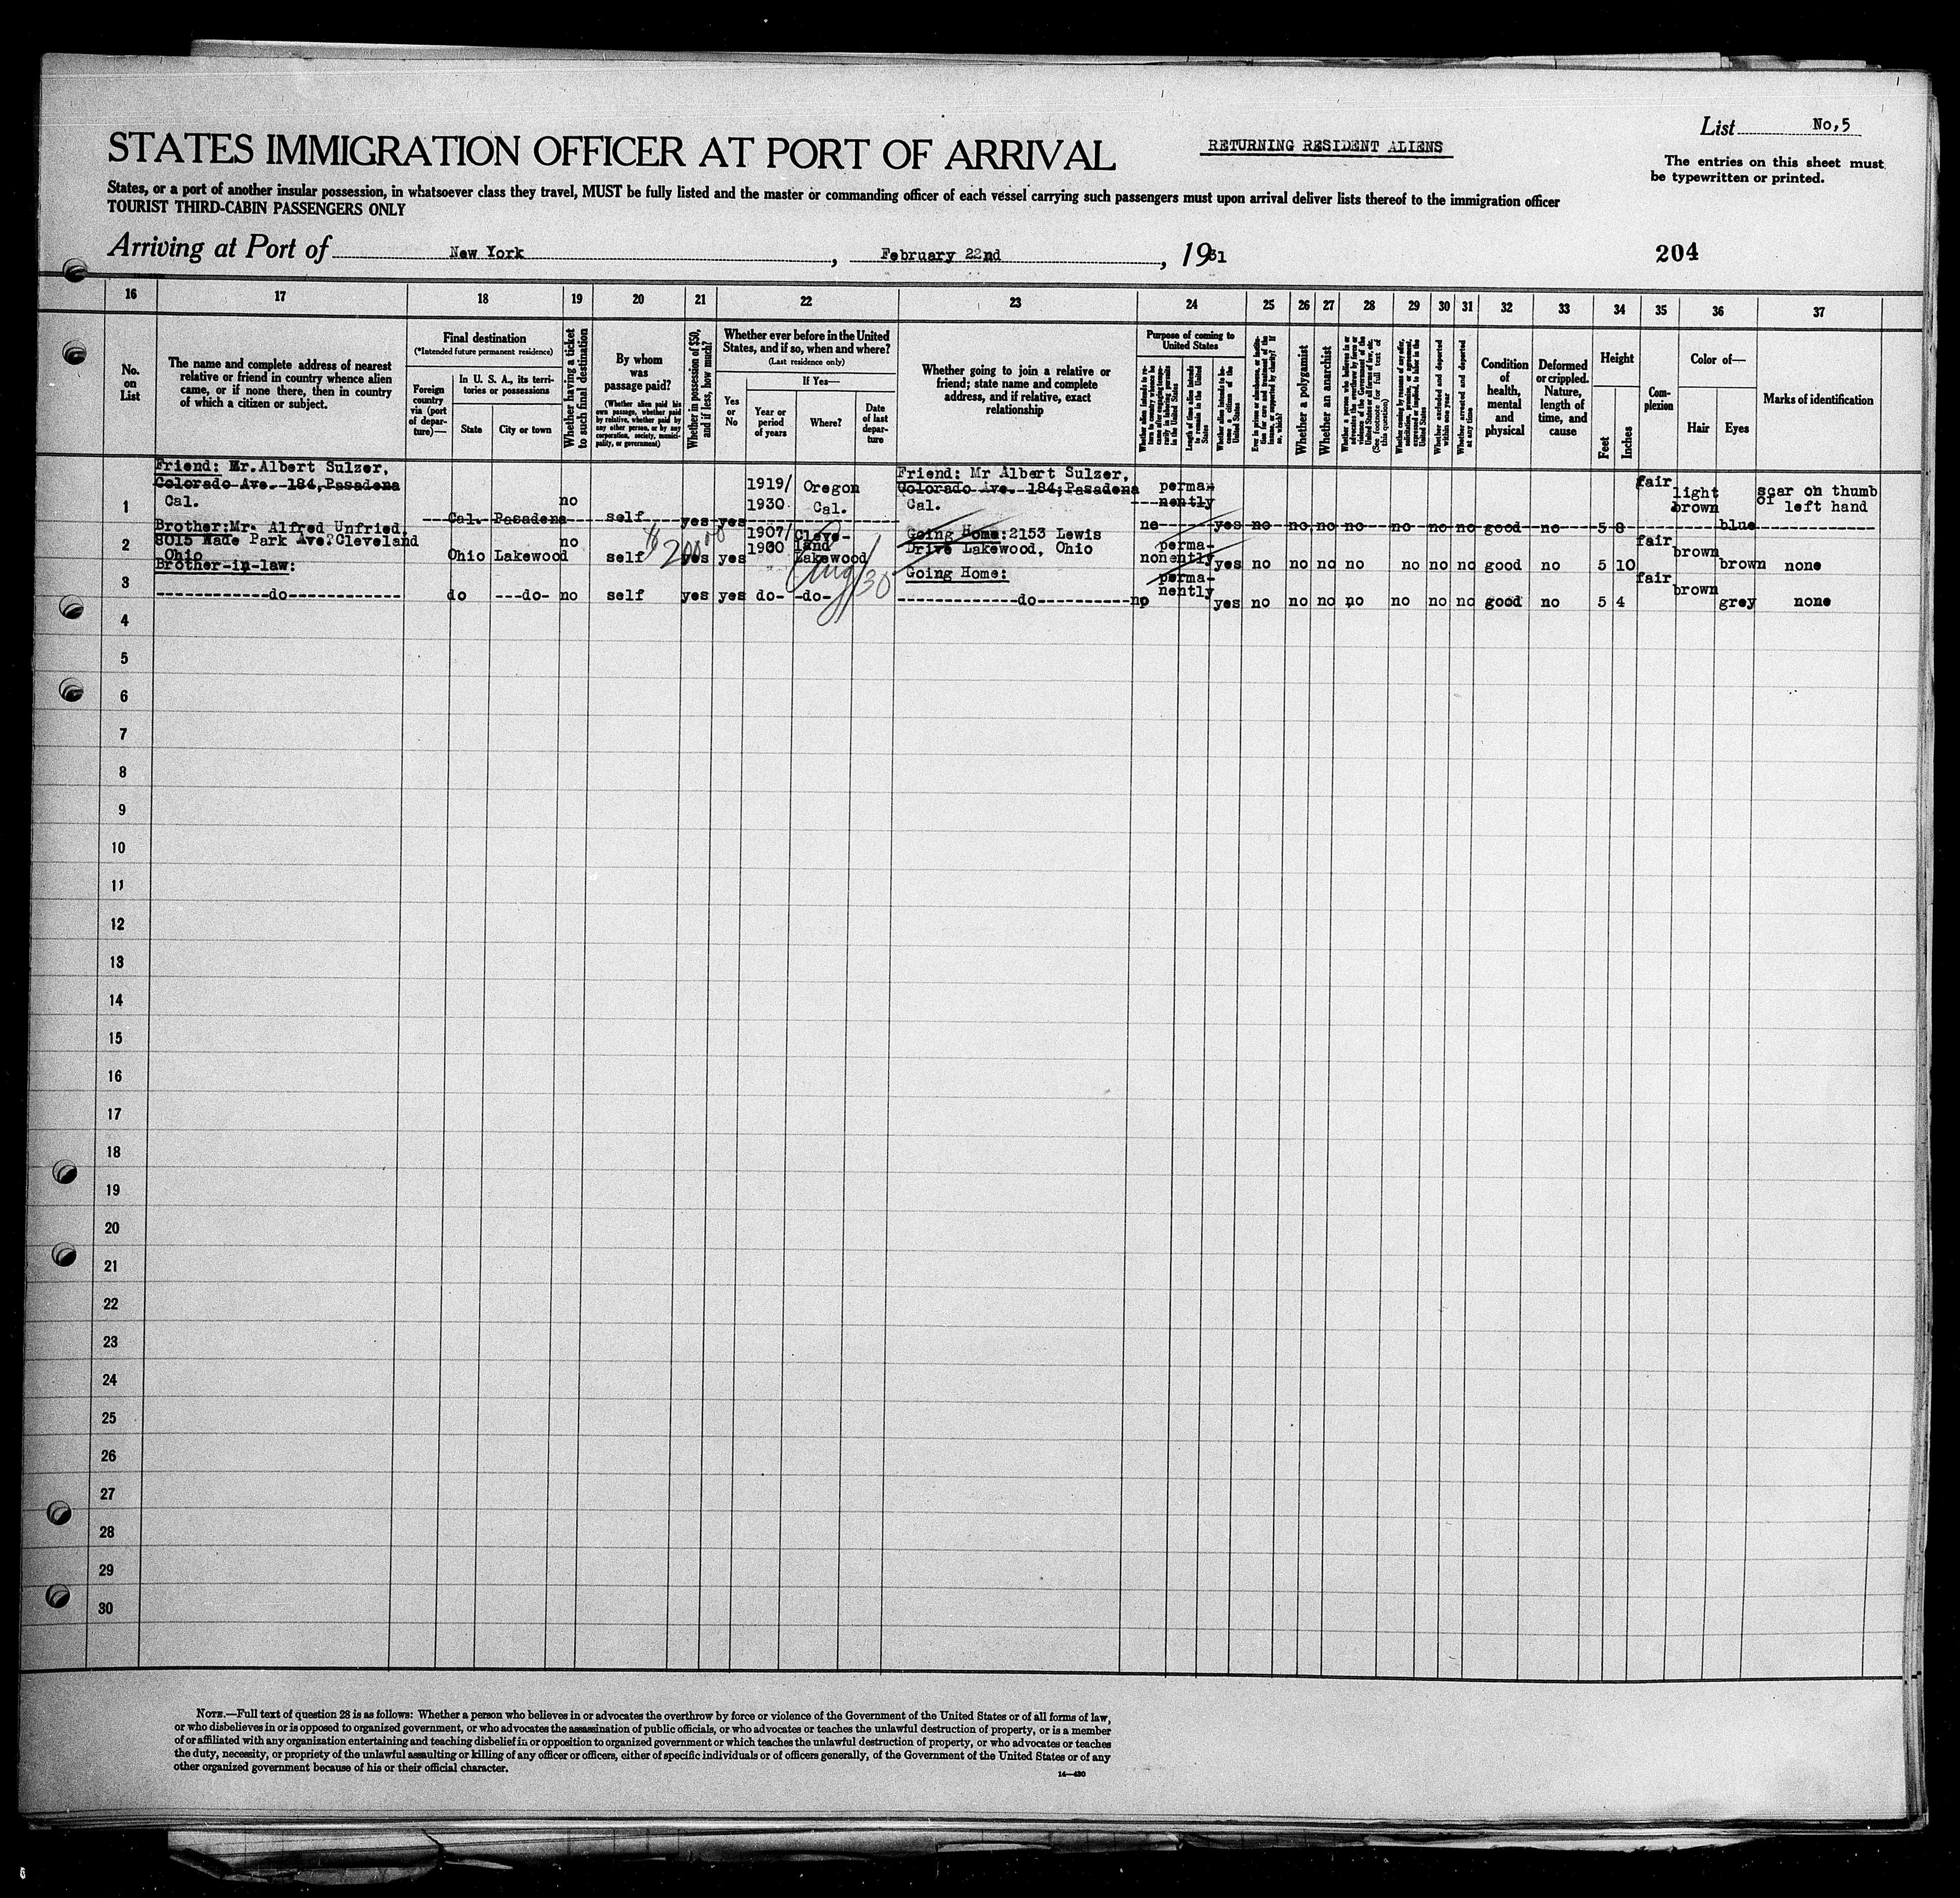 List No,5
STATES IMMIGRATION OFFICER AT PORT OF ARRIVAL
RETURNING RESIDENT ALIENS
The entries on this sheet must
be typewritten or printed.
States, or a port of another insular possession, in whatsoever class they travel, MUST be fully listed and the master or commanding officer of each vessel carrying such passengers must upon arrival deliver lists thereof to the immigration officer
TOURIST THIRD-CABIN PASSENGERS ONLY
Arriving at Port of New York, February 22nd, 1931
204
16 17 18 19 20 21 22 23 24 25 26 27 28 29 30 31 32 33 34 35 36 37
No.
on
List
The name and complete address of nearest
relative or friend in country whence alien
came, or if none there, then in country
of which a citizen or subject.
Final destination
(*Intended future permanent residence)
Foreign
country
via (port
of depar-
ture)—
In U. S. A., its terri-
tories or possessions
State
City or town
Whether having a ticket
to such final destination
By whom
was
passage paid?
(Whether alien paid his
own passage, whether paid
by relative, whether paid by
any other person, or by any
corporation, society, munici-
pality, or government)
Whether in possession of $50,
and if less, how much?
Whether ever before in the United
States, and if so, when and where?
(Last residence only)
Yes
or
No
If Yes—
Year or
period
of years
Where?
Date
of last
depar-
ture
Whether going to join a relative or
friend; state name and complete
address, and if relative, exact
relationship
Purpose of coming to
United States
Length of time alien intends
to remain in the United
States
Whether alien intends to be-
come a citizen of the
United States
Whether a polygamist
Whether an anarchist
(See footnote for full text of
this question)
Whether excluded and deported
within one year
Whether arrested and deported
at any time
Condition
of
health,
mental
and
physical
Deformed
or crippled.
Nature,
length of
time, and
cause
Height
Feet
Inches
Com-
plexion
Color of—
Hair
Eyes
Marks of identification
1
Friend: Mr.Albert Sulzer,
Colorado Ave. 184,Pasadena
Cal.
Cal. Pasadena no self yes yes
1919/
1930
Oregon
Cal.
Friend: Mr Albert Sulzer,
Colorado Ave. 184;Pasadena
Cal.
no
perma-
nently
yes no no no no no no no good no 5 8
fair
light
brown
blue
scar on thumb
of left hand
2
Brother:Mr. Alfred Unfried,
8015 Wade Park Ave.Cleveland
Ohio
Ohio Lakewood no self yes yes
1907/
1930
Cleve-
land
Lakewood
$200.00
Aug/30
Going Home:2153 Lewis
Drive Lakewood, Ohio
no
perma-
nently
yes no no no no no no no good no 5 10
fair
brown
brown
none
3
Brother-in-law:
------------do------------
do ---do- no self yes yes do- -do-
Going Home:
-------------do----------
no
perma-
nently
yes no no no no no no no good no 5 4
fair
brown
grey
none
4
5
6
7
8
9
10
11
12
13
14
15
16
17
18
19
20
21
22
23
24
25
26
27
28
29
30
NOTE.—Full text of question 28 is as follows: Whether a person who believes in or advocates the overthrow by force or violence of the Government of the United States or of all forms of law,
or who disbelieves in or is opposed to organized government, or who advocates the assassination of public officials, or who advocates or teaches the unlawful destruction of property, or is a member
of or affiliated with any organization entertaining and teaching disbelief in or opposition to organized government or which teaches the unlawful destruction of property, or who advocates or teaches
the duty, necessity, or propriety of the unlawful assaulting or killing of any officer or officers, either of specific individuals or of officers generally, of the Government of the United States or of any
other organized government because of his or their official character.
14—430